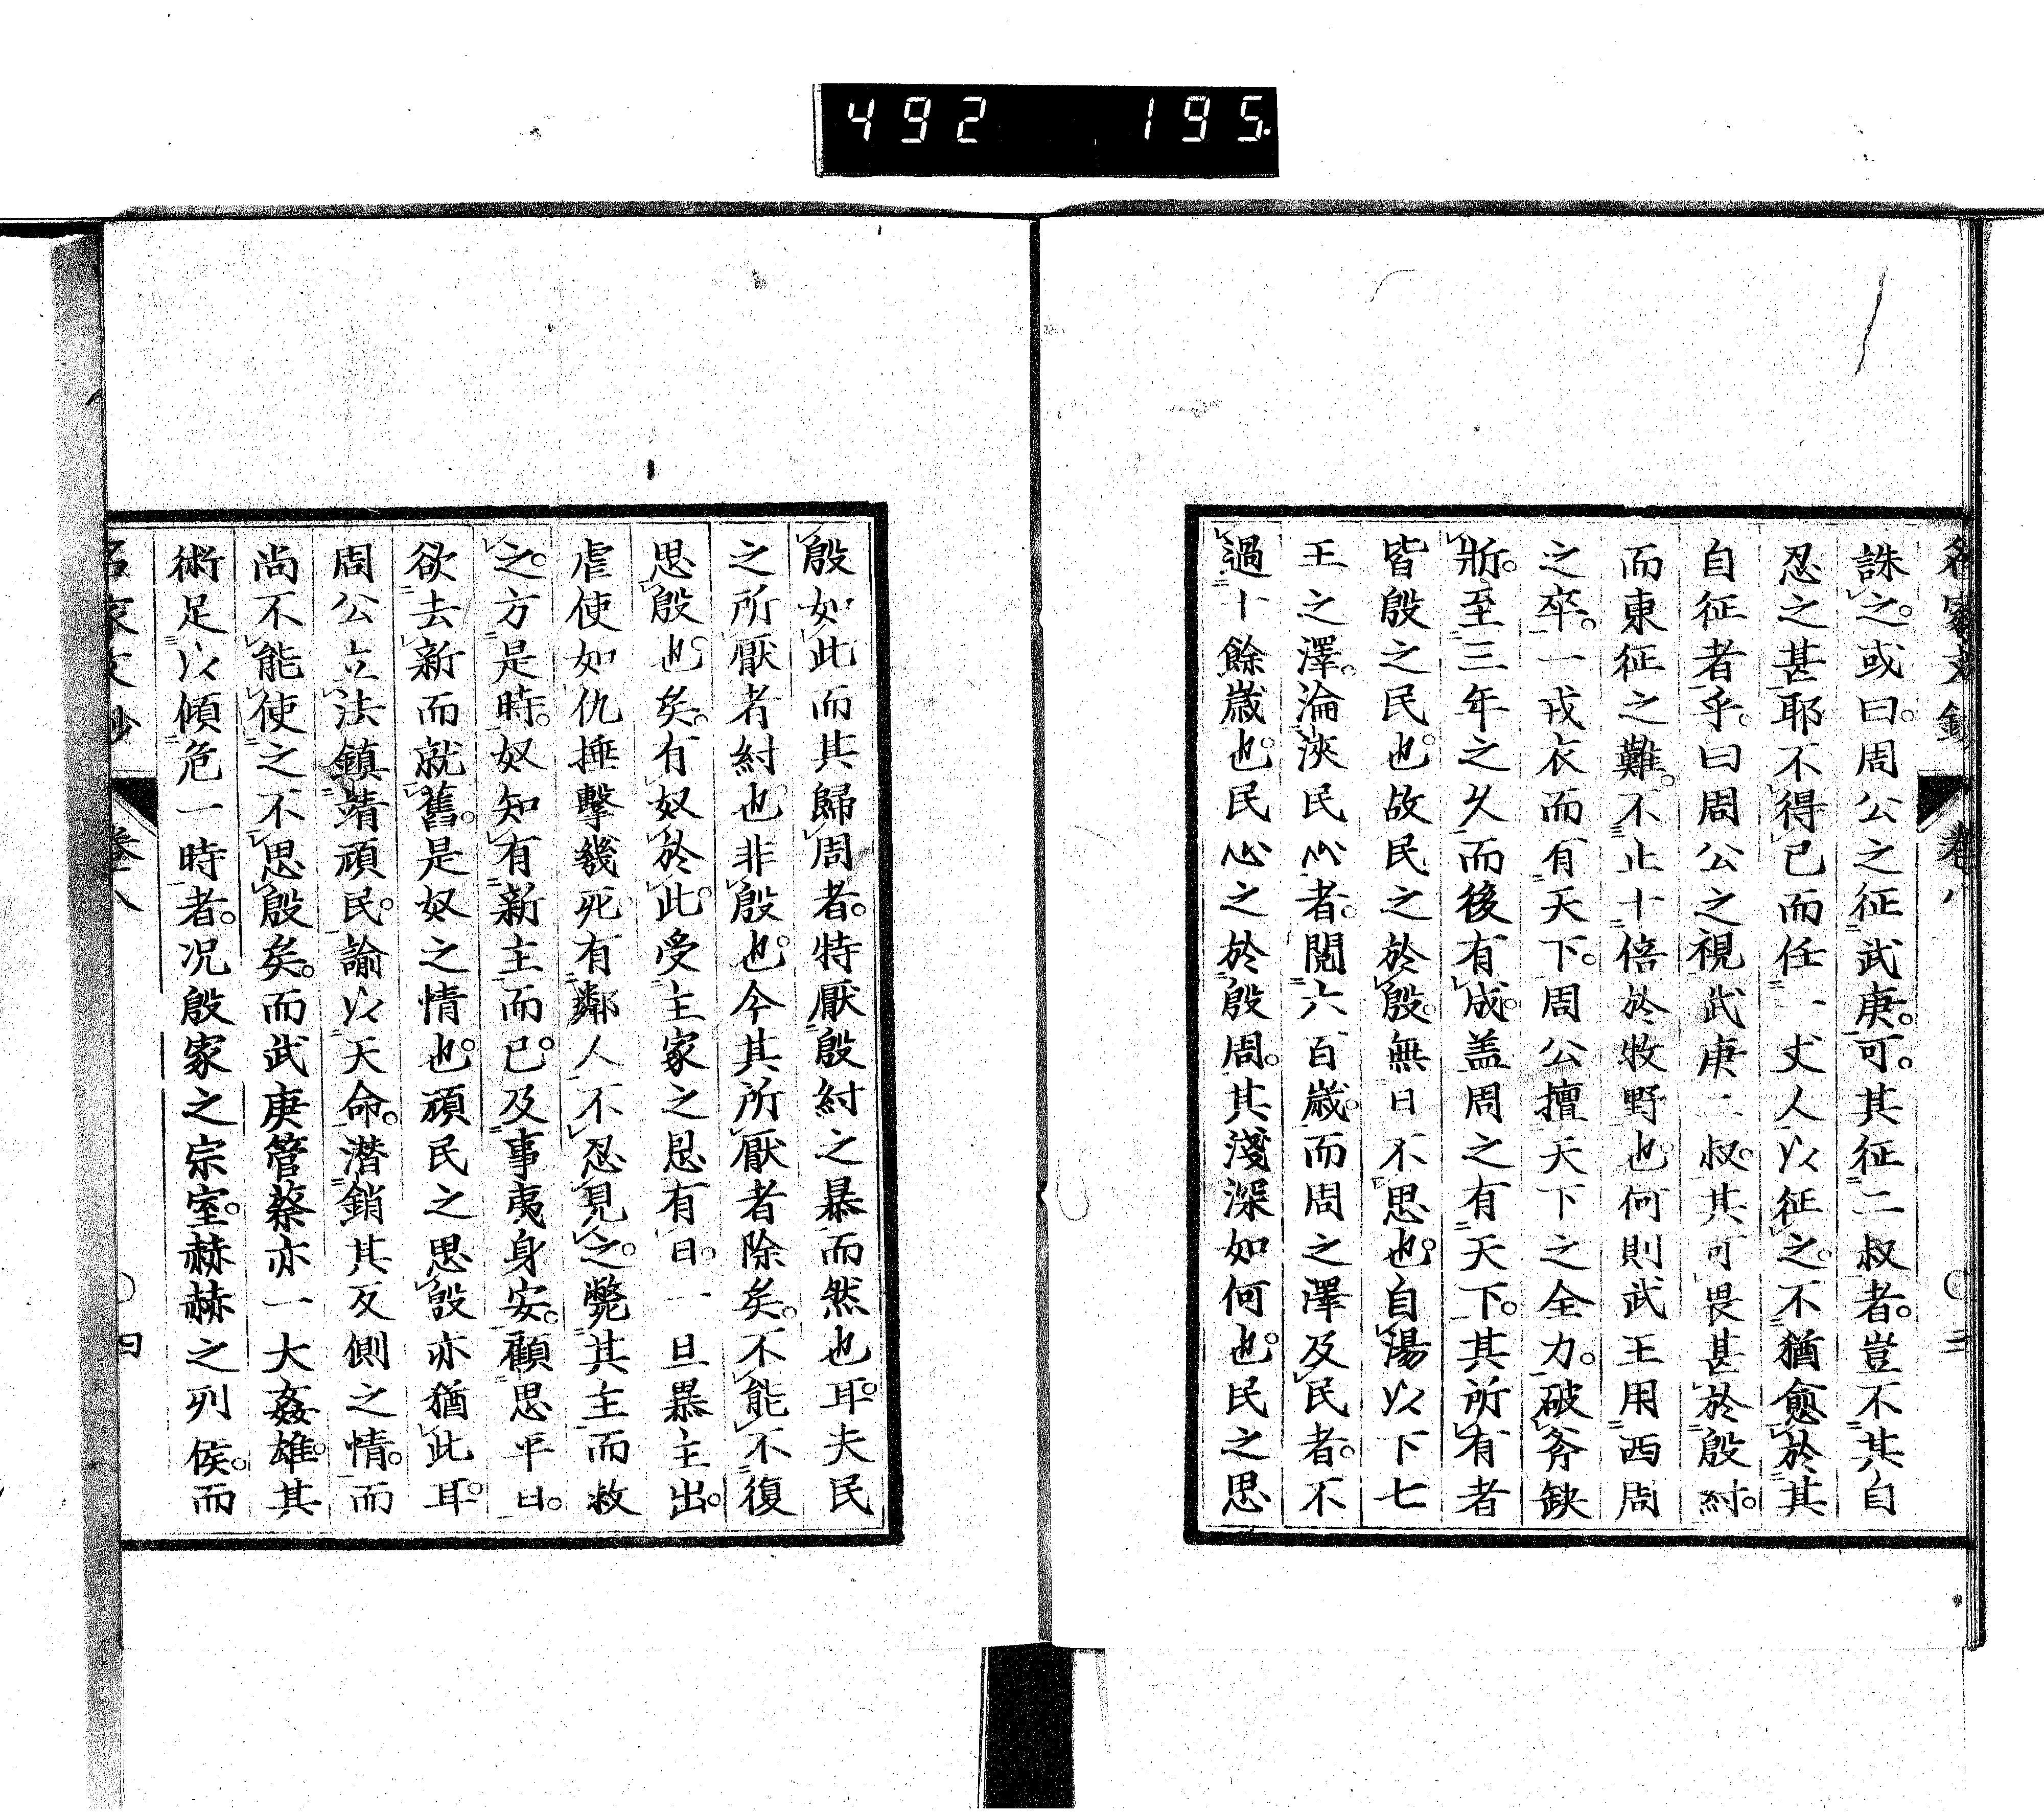 492 195.
名家文鈔 卷八 〇三
誅之。或曰。周公之征武庚。可。其征二叔者。豈不其自
忍之甚耶不得已而任一丈人以征之。不猶愈於其
自征者乎。曰周公之視武庚二叔。其可畏甚於殷紂。
而東征之難。不止十倍於牧野也。何則武王用西周
之卒。一戎衣而有天下。周公擅天下之全力。破斧缺
斨。至三年之久而後有成。盖周之有天下。其所有者
皆殷之民也。故民之於殷。無日不思也。自湯以下七
王之澤。淪浹民心者。閲六百歳。而周之澤及民者。不
過十餘歳也。民心之於殷周。其淺深如何也。民之思
殷如此而其歸周者。特厭殷紂之暴而然也耳。夫民
之所厭者紂也非殷也。今其所厭者除矣。不能不復
思殷也矣。有奴於此。受主家之恩有日。一旦暴主出。
虐使如仇捶擊幾死。有鄰人不忍見之。斃其主而救
之。方是時。奴知有新主而已。及事夷身安。顧思平日。
欲去新而就舊。是奴之情也。頑民之思殷亦猶此耳。
周公立法鎮靖頑民。諭以天命。潜銷其反側之情。而
尚不能使之不思殷矣。而武庚管蔡亦一大姦雄。其
術足以傾危一時者。况殷家之宗室。赫赫之列侯。而
名家文鈔 卷八 〇四